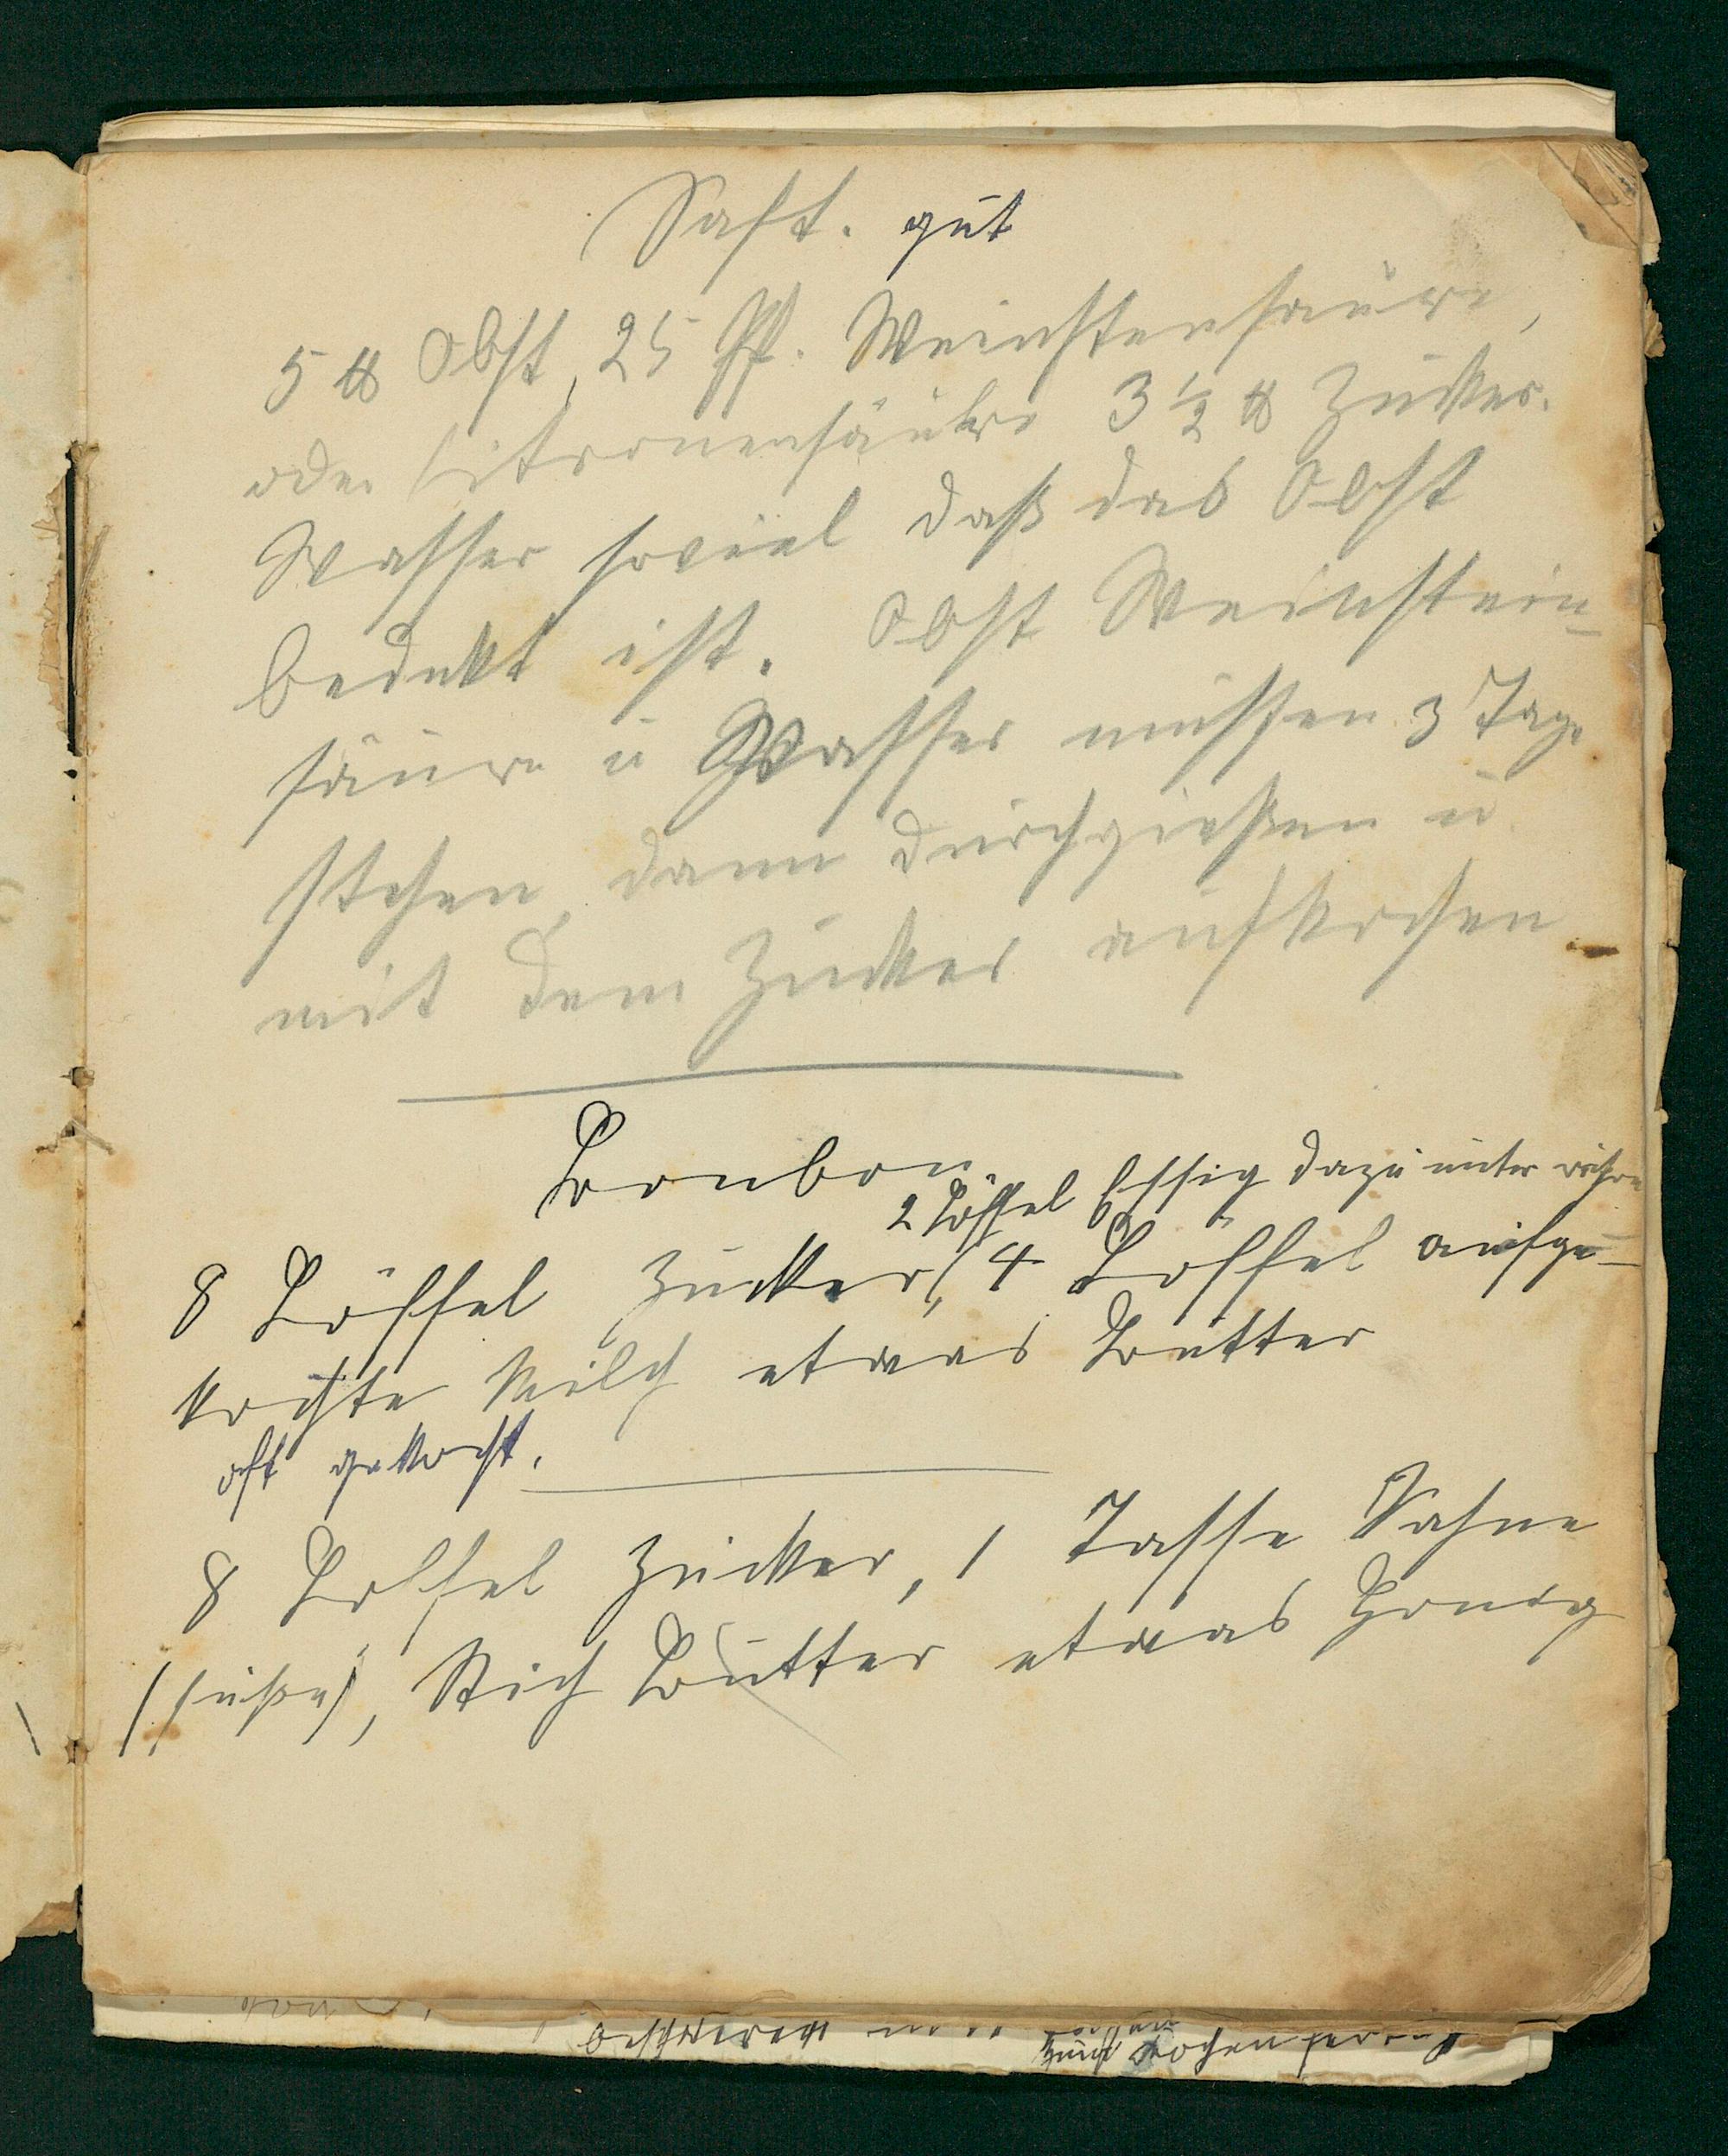 Saft. gut
5 ℔ Obst, 25 Pf. Weinstensäure,
oder Citronensäure 3 1/2 ℔ Zucker.
Wasser soviel daß das Obst
bedekt ist. Obst Weinstein-
säure u Wasser müssen 3 Tage
stehen, dann durchgießen u
mit dem Zucker aufkochen
Bonbon.
2 Löffel Essig dazu unter rühren
8 Löffel Zucker, 4 Löffel aufge-
kochte Milch etwas Butter
oft gekocht.
8 Löffel Zucker, 1 Tasse Sahne
(süße), Stich Butter etwas Honig
zum Kochen